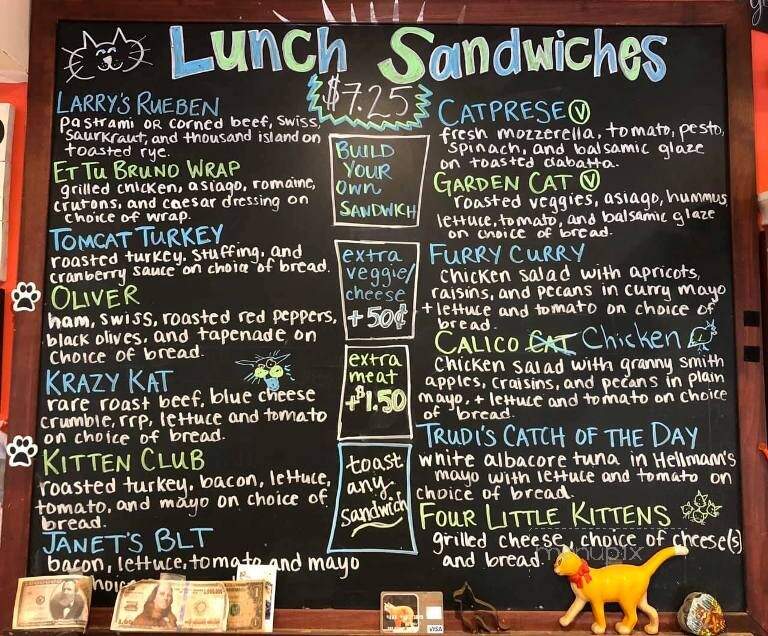 Lunch Sandwiches
$7.25
LARRY'S RUEBEN
pastrami OR corned beef, swiss,
saurkraut, and thousand island on
toasted rye.
ET TU BRUNO WRAP
grilled chicken, asiago, romaine,
crutons, and caesar dressing on
choice of wrap.
TOMCAT TURKEY
roasted turkey, stuffing, and
cranberry sauce on choice of bread.
OLIVER
ham, swiss, roasted red peppers,
black olives, and tapenade on
choice of bread.
KRAZY KAT
rare roast beef, blue cheese
crumble, rrp, lettuce and tomato
on choice of bread.
KITTEN CLUB
roasted turkey, bacon, lettuce,
tomato, and mayo on choice of
bread.
JANET'S BLT
bacon, lettuce, tomato and mayo
BUILD
YOUR
OWN
SANDWICH
extra
veggie/
cheese
+50¢
extra
meat
+$1.50
toast
any
sandwich
CATPRESE V
fresh mozzerella, tomato, pesto,
spinach, and balsamic glaze
on toasted ciabatta.
GARDEN CAT V
roasted veggies, asiago, hummus
lettuce, tomato, and balsamic glaze
on choice of bread.
FURRY CURRY
chicken salad with apricots,
raisins, and pecans in curry mayo
+ lettuce and tomato on choice of
bread.
CALICO CAT Chicken
Chicken salad with granny smith
apples, craisins, and pecans in plain
mayo, + lettuce and tomato on choice
of bread.
TRUDI'S CATCH OF THE DAY
white albacore tuna in Hellmann's
mayo with lettuce and tomato on
choice of bread.
FOUR LITTLE KITTENS
grilled cheese, choice of cheese(s)
and bread.
menupix
VISA